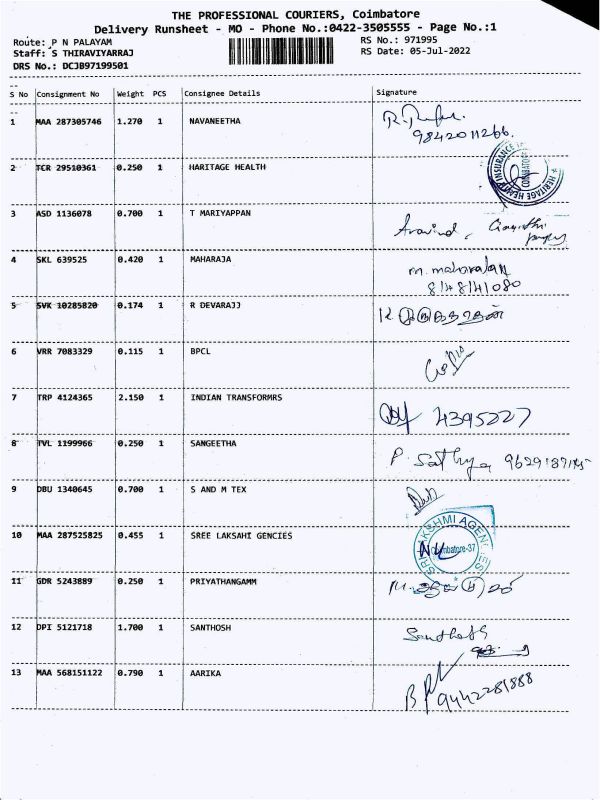 THE PROFESSIONAL COURIERS, Coimbatore
Delivery Runsheet - MO - Phone No.:0422-3505555 - Page No.:1
Route: P N PALAYAM RS No.: 971995
Staff: S THIRAVIYARRAJ RS Date: 05-Jul-2022
DRS No.: DCJB97199501
S No Consignment No Weight PCS Consignee Details Signature
1 MAA 287305746 1.270 1 NAVANEETHA
9842011266.
2 TCR 29510361 0.250 1 HARITAGE HEALTH
HERITAGE HEALTH INSURANCE
3 ASD 1136078 0.700 1 T MARIYAPPAN
Aravind,
4 SKL 639525 0.420 1 MAHARAJA
8148141080
5 SVK 10285820 0.174 1 R DEVARAJJ
6 VRR 7083329 0.115 1 BPCL
7 TRP 4124365 2.150 1 INDIAN TRANSFORMRS
4395227
8 TVL 1199966 0.250 1 SANGEETHA
P. Sathya
9 DBU 1340645 0.700 1 S AND M TEX
10 MAA 287525825 0.455 1 SREE LAKSAHI GENCIES
SRI LAKSHMI AGENCIES
Coimbatore-37
11 GDR 5243889 0.250 1 PRIYATHANGAMM
12 DPI 5121718 1.700 1 SANTHOSH
Santhosh
13 MAA 568151122 0.790 1 AARIKA
9442281888